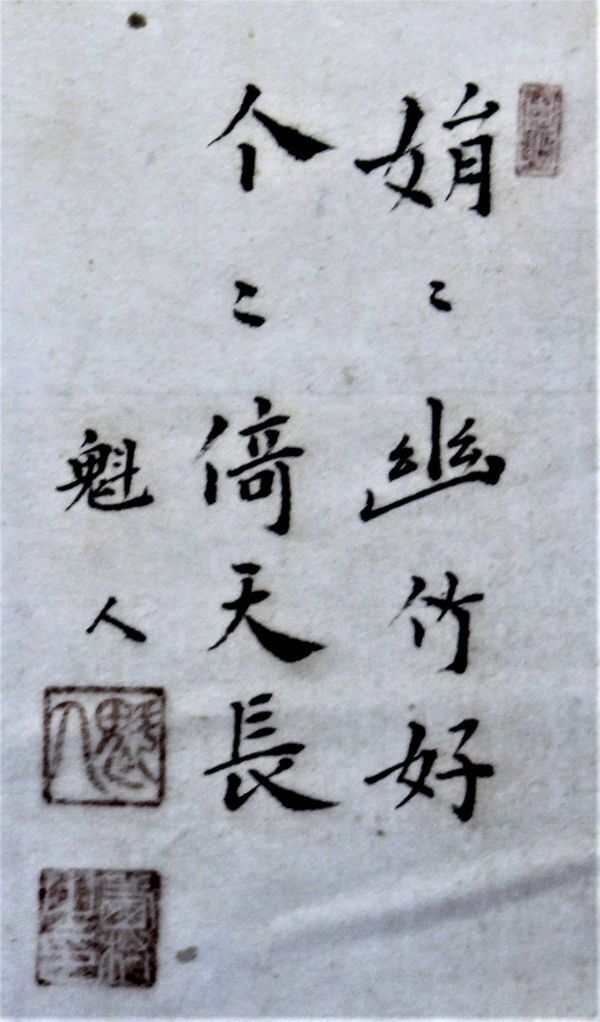 娟〻幽竹好
个〻倚天長
魁人
魁人